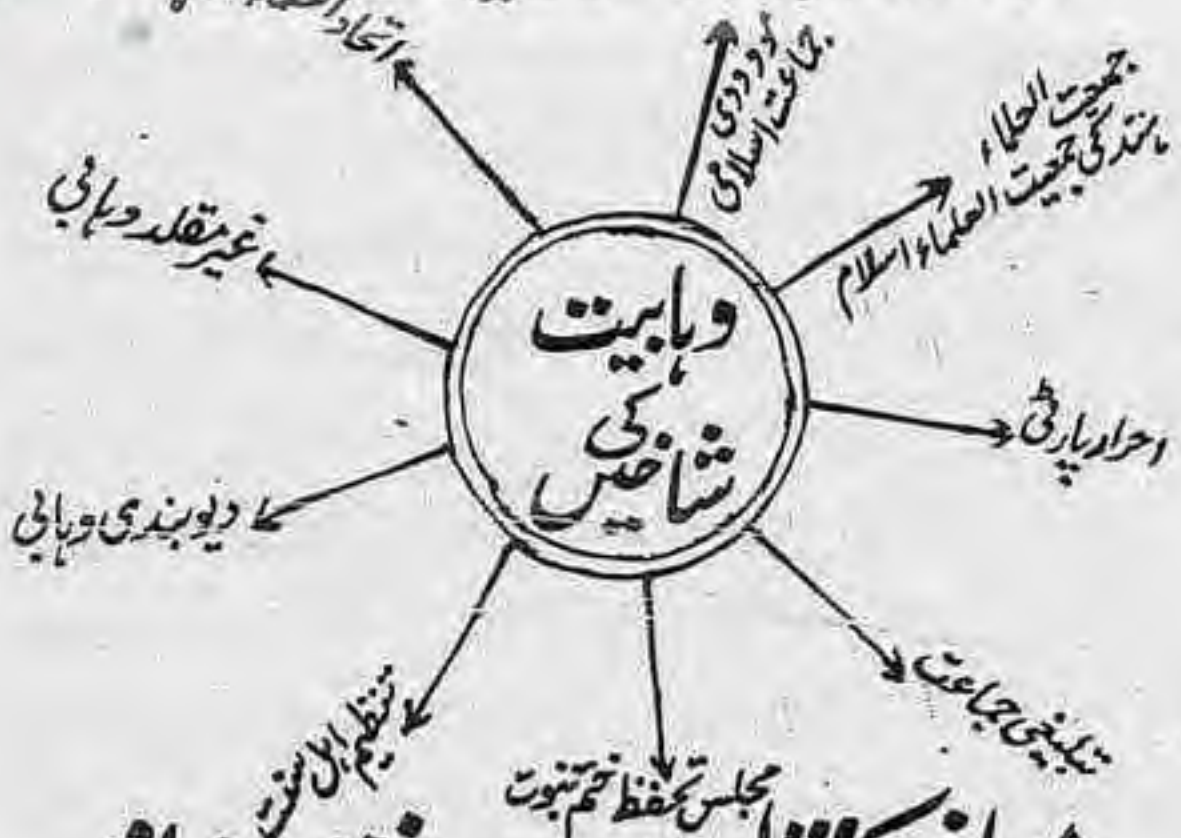 وہابیت
کی
شاخیں
جماعت اسلامی
جمعیت العلماء
مانند کی جمعیت العلماء اسلام
احرار پارٹی
تبلیغی جماعت
مجلس تحفظ ختم نبوت
تنظیم اہل سنت
دیوبندی وہابی
غیر مقلد وہابی
اتحاد